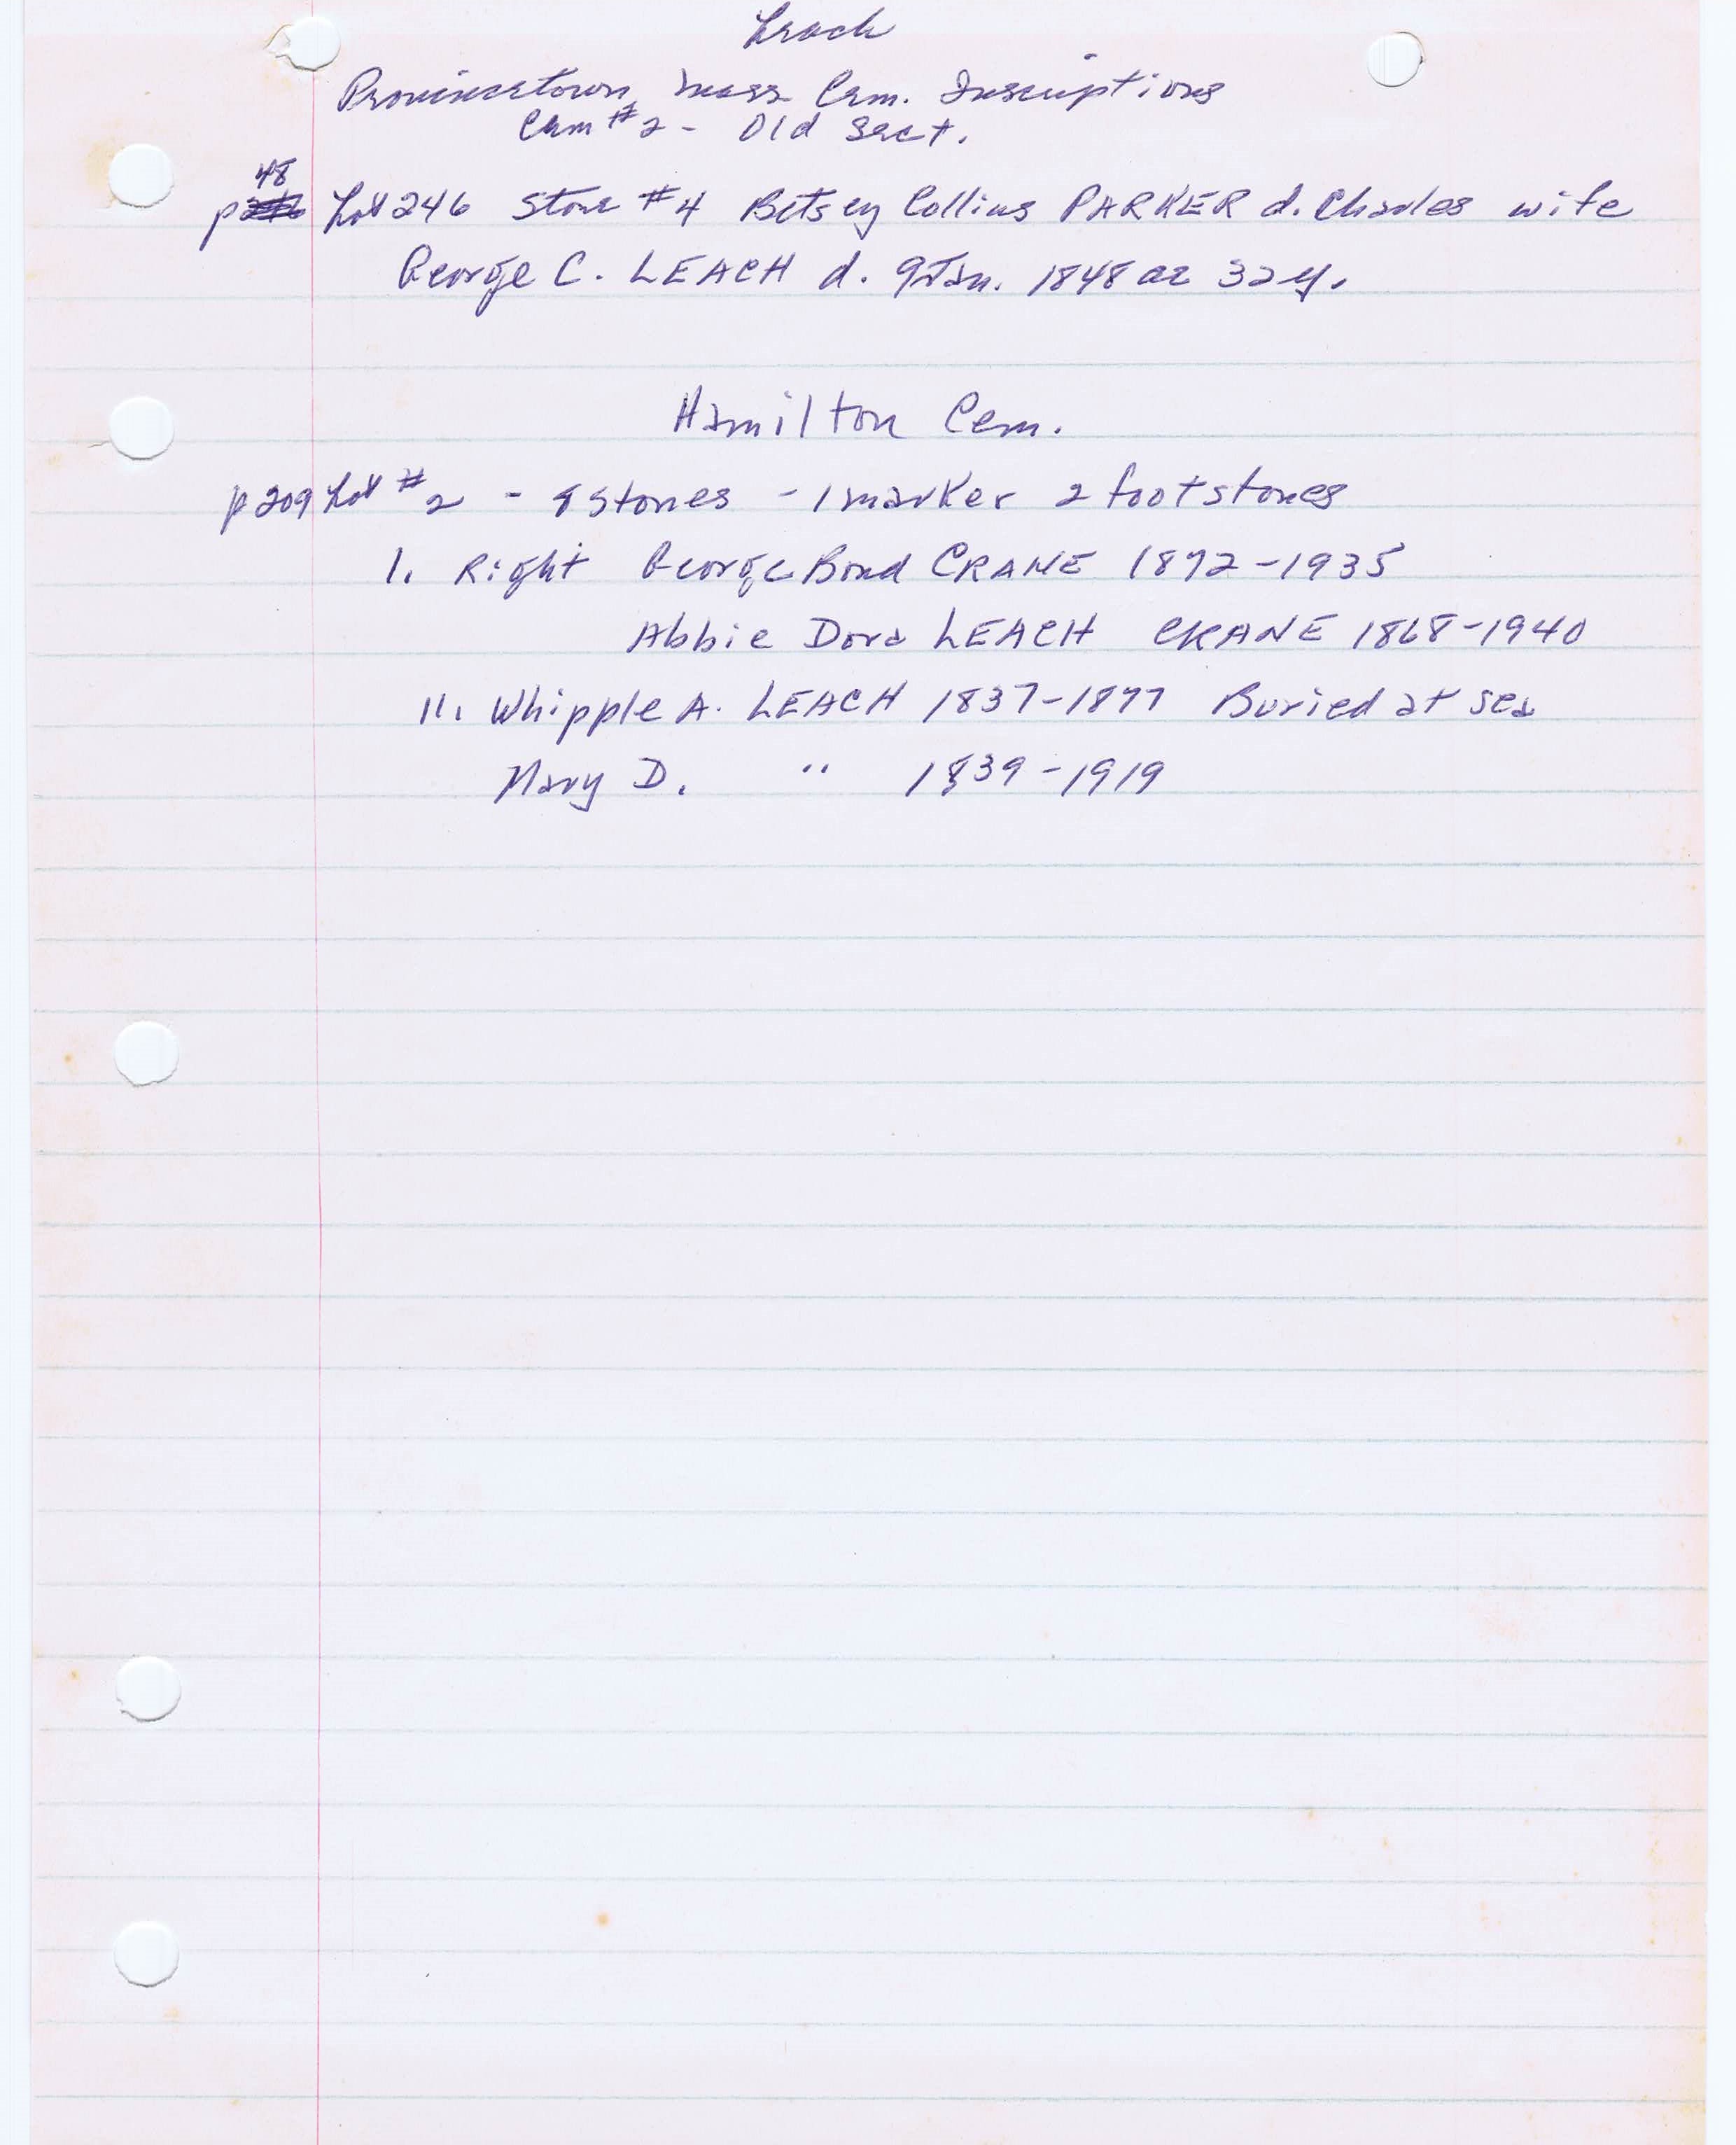 Leach
Provincetown, Mass Cem. Inscriptions
Cem #2 - Old Sect.
48
p Lot 246 Stone #4 Betsey Collins PARKER d. Charles wife
George C. LEACH d. 9 Jan. 1848 ae 32 y.
Hamilton Cem.
p 209 Lot #2 - 8 stones - 1 marker 2 footstones
1. Right George Bond CRANE 1872-1935
Abbie Dora LEACH CRANE 1868-1940
11. Whipple A. LEACH 1837-1877 Buried at sea
Mary D. " 1839-1919